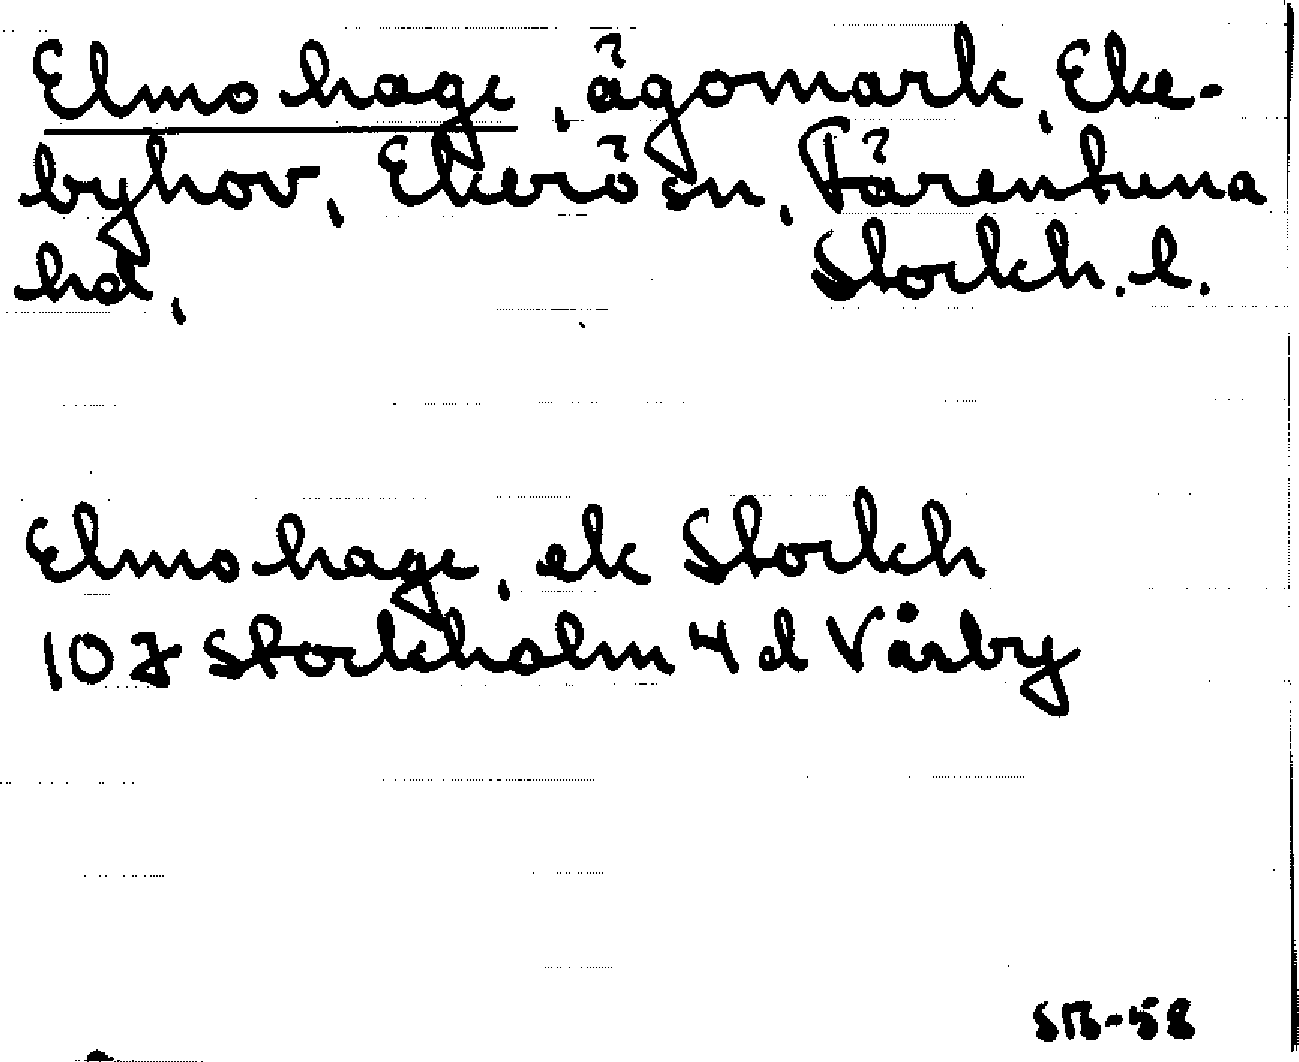 Elmohage, ägomark, Eke-
byhov, Ekerö sn, Färentuna
hd, Stockh. l.
Elmohage, ek Stockh
10 J Stockholm 4 d Vårby
SB-58